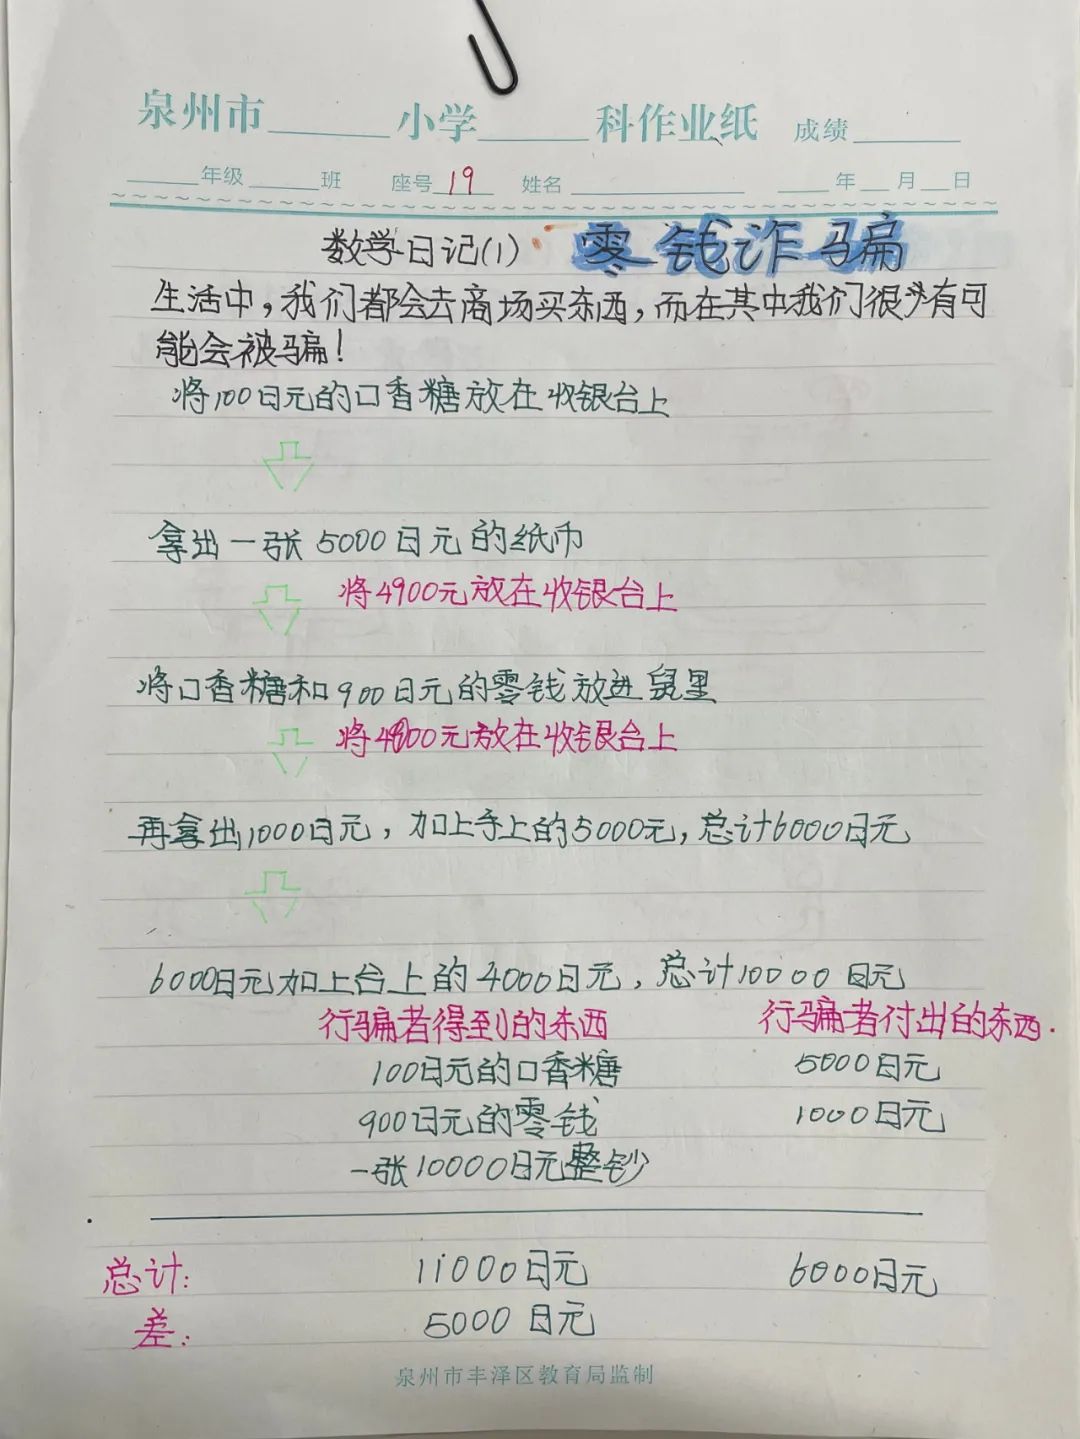 泉州市______小学______科作业纸 成绩______
____年级____班 座号 19 姓名________ ___年__月__日
数学日记(1) 零钱诈骗
生活中,我们都会去商场买东西,而在其中我们很少有可
能会被骗!
将100日元的口香糖放在收银台上
拿出一张5000日元的纸币
将4900元放在收银台上
将口香糖和900日元的零钱放进包里
将4000元放在收银台上
再拿出1000日元,加上手上的5000元,总计6000日元
6000日元加上台上的4000日元,总计10000日元
行骗者得到的东西 行骗者付出的东西.
100日元的口香糖 5000日元
900日元的零钱 1000日元
一张10000日元整钞
总计: 11000日元 6000日元
差: 5000日元
泉州市丰泽区教育局监制